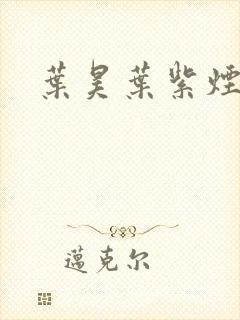 葉昊葉紫煙
邁克尔